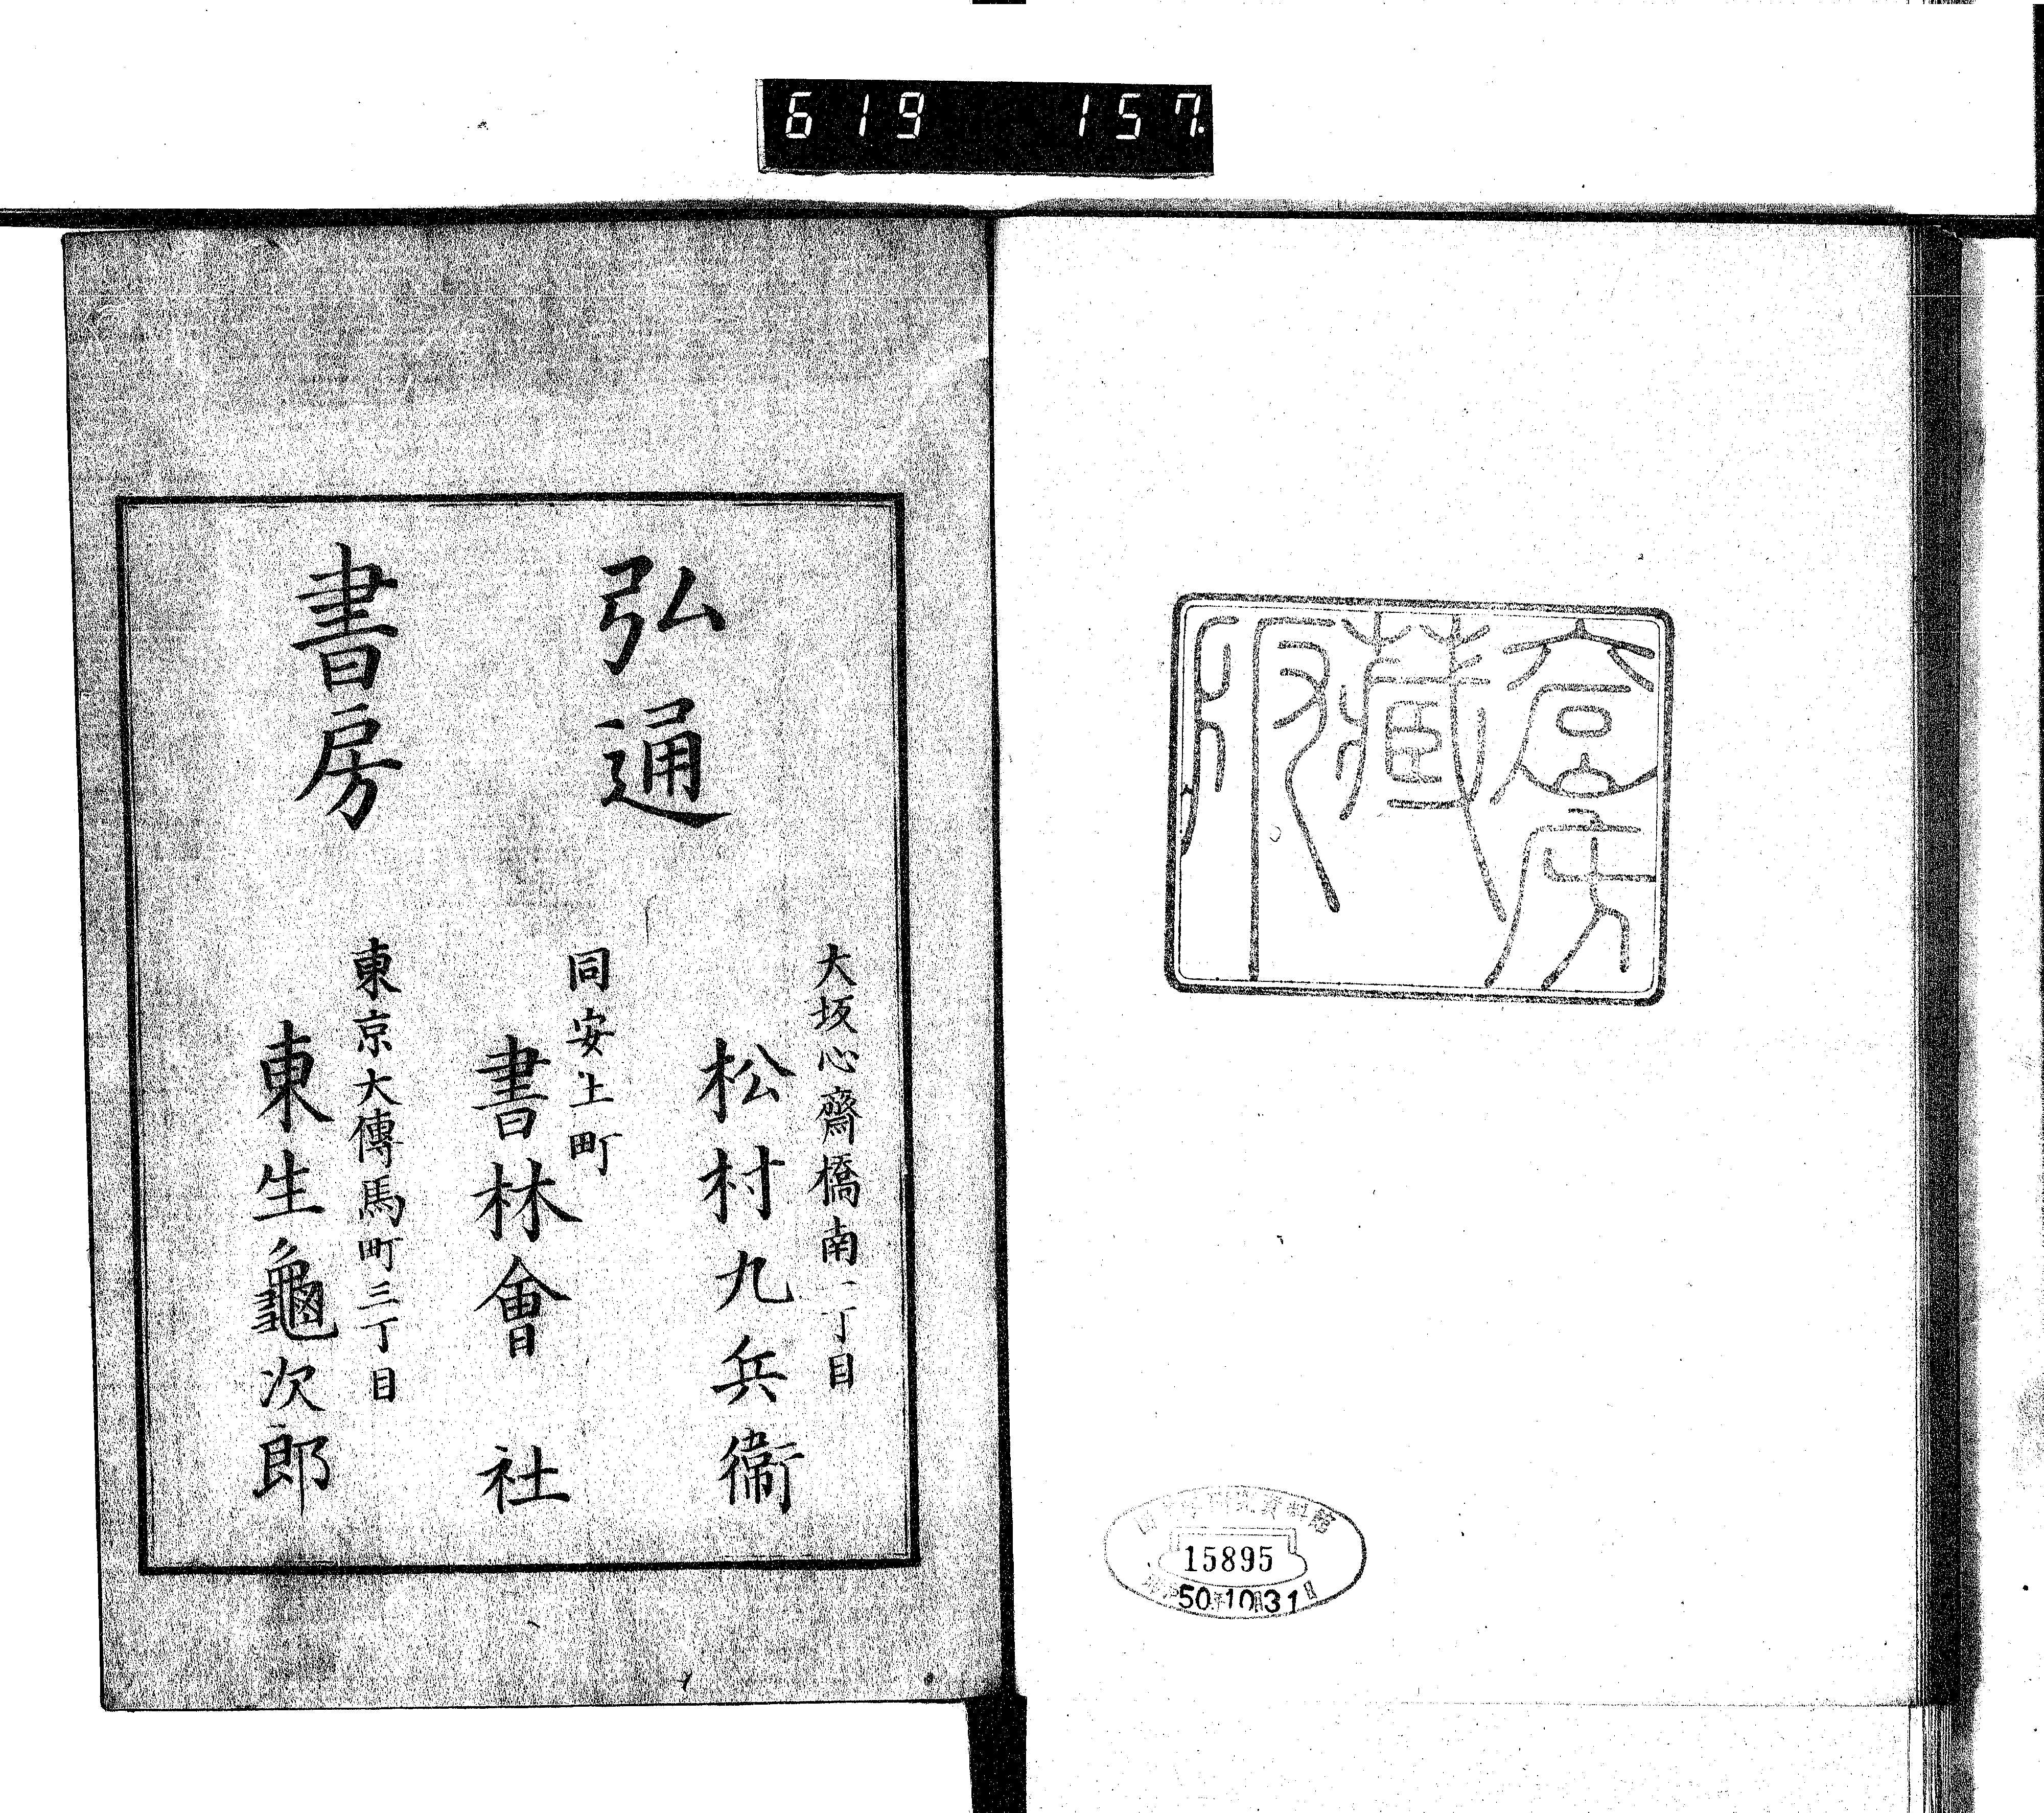 619 157
藏版
15895
50 10 31
弘通
書房
大坂心齋橋南一丁目
松村九兵衞
同安土町
書林會社
東京大傳馬町三丁目
東生龜次郎